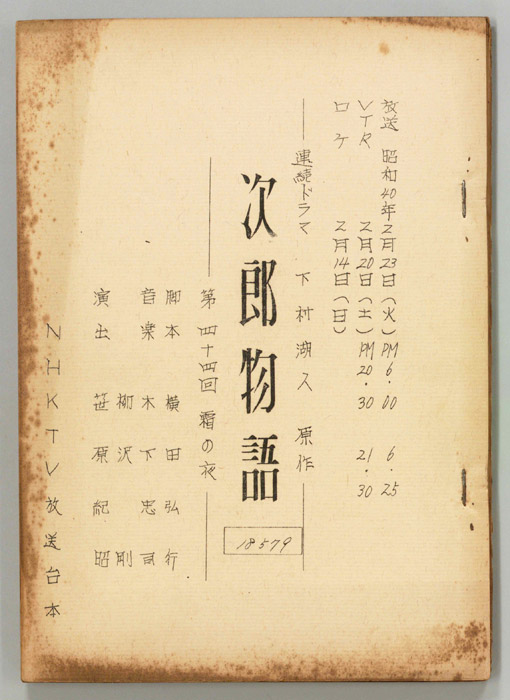 放送 昭和40年2月23日(火)PM6.00 6.25
VTR 2月20日(土)PM20.30 21.30
ロケ 2月14日(日)
連続ドラマ 下村湖人 原作
次郎物語
18579
第四十四回 霜の夜
脚本 横田弘行
音楽 木下忠司
柳沢 剛
演出 笹原紀昭
NHKTV放送台本